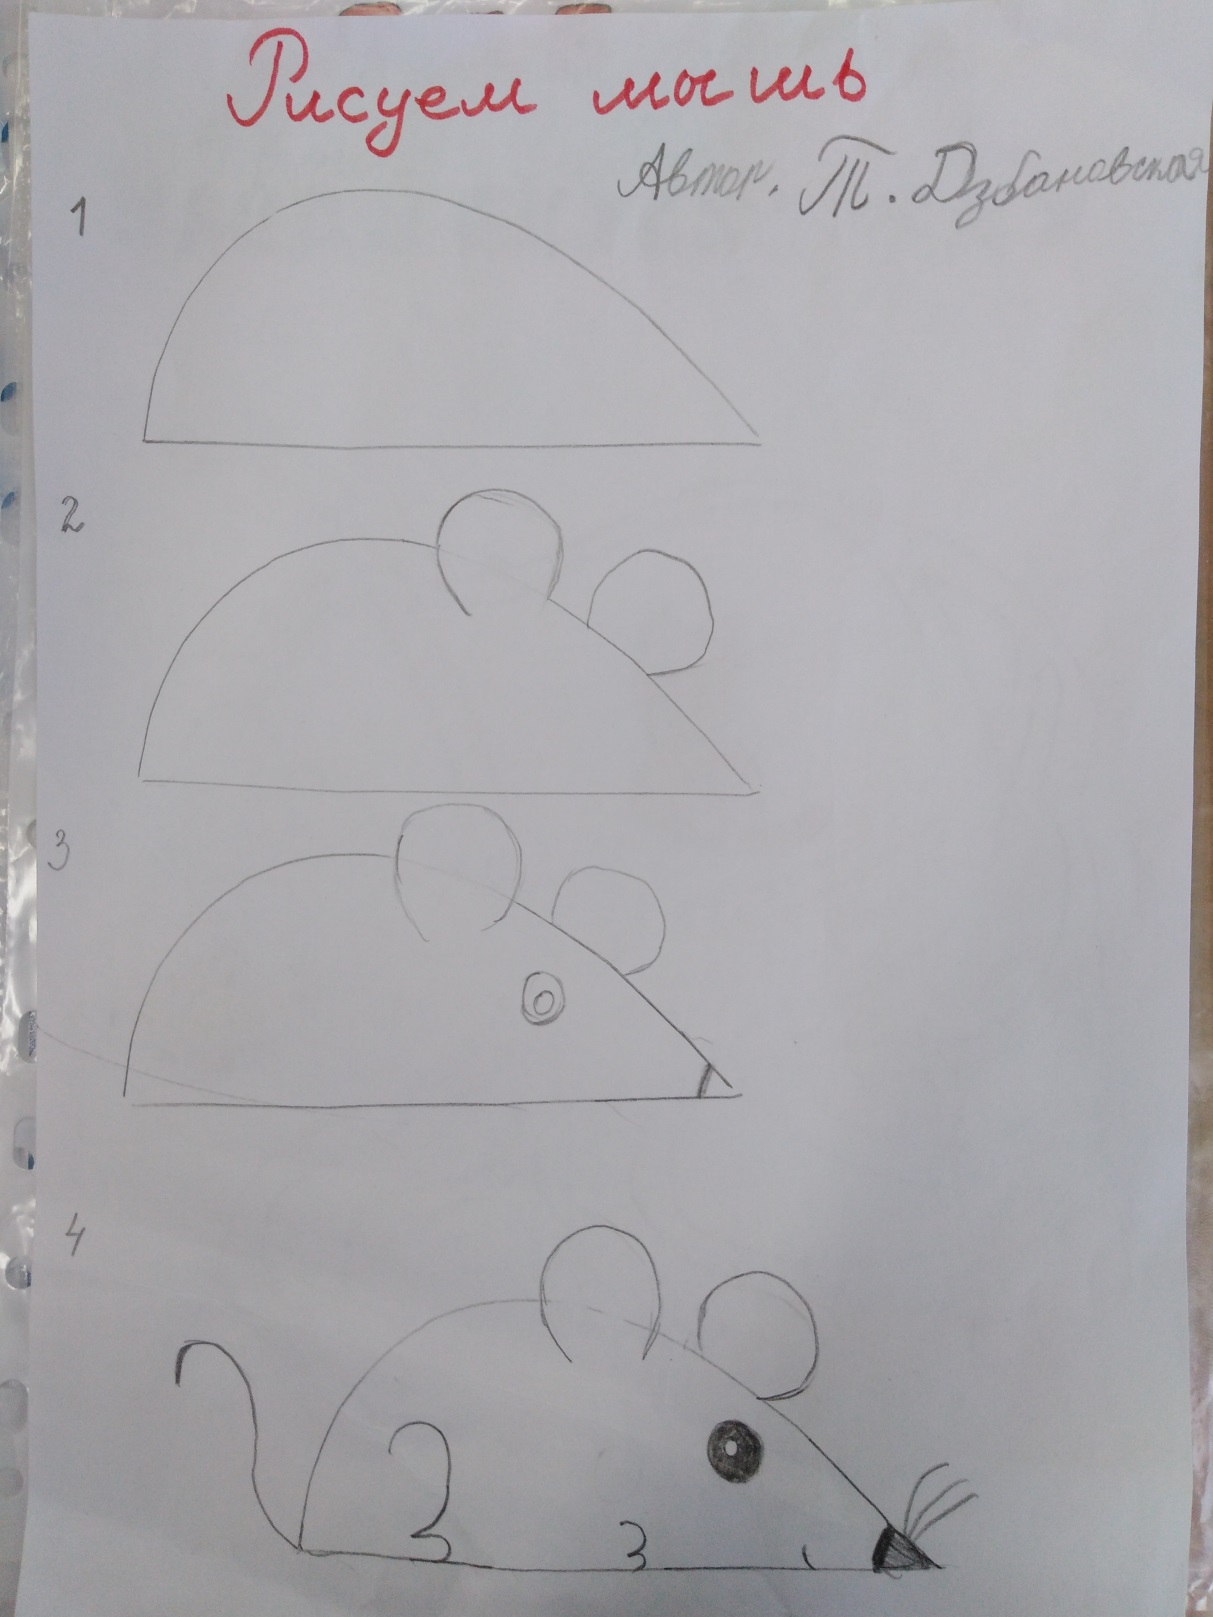 Рисуем мышь
Автор. Т. Дзбановская
1
2
3
4